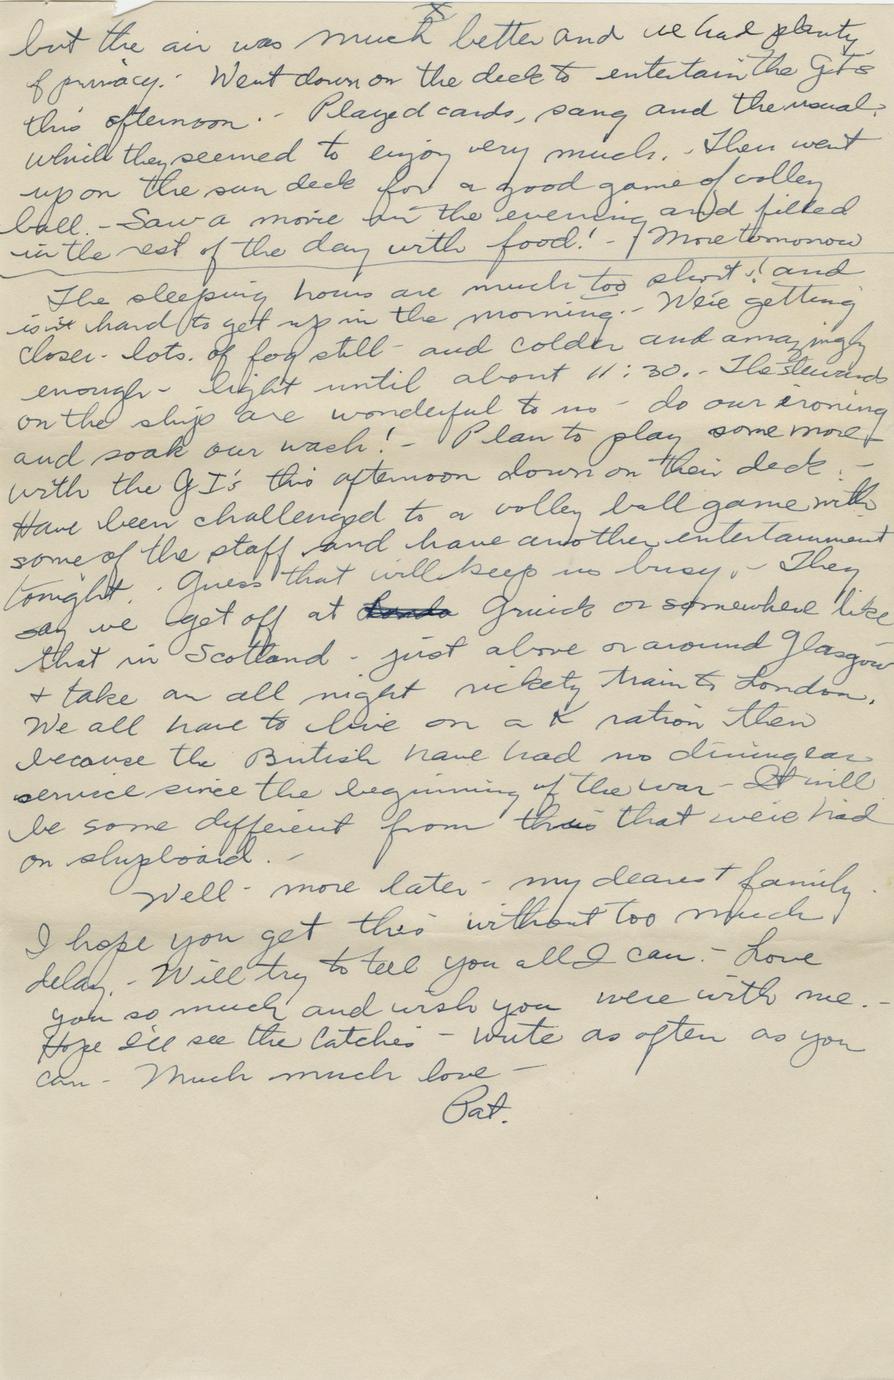 X
but the air was much better and we had plenty
of privacy.- Went down on the deck to entertain the GI's
this afternoon.- Played cards, sang and the usual
which they seemed to enjoy very much.- Then went
up on the sun deck for a good game of volley
ball.- Saw a movie in the evening and filled
in the rest of the day with food!- More tomorrow
The sleeping hours are much too short! and
is it hard to get up in the morning.- We're getting
closer- lots of fog still- and colder and amazingly
enough- light until about 11:30.- The stewards
on the ship are wonderful to us- do our ironing
and soak our wash!- Plan to play some more
with the GI's this afternoon down on their deck.-
Have been challenged to a volley ball game with
some of the staff and have another entertainment
tonight.. Guess that will keep us busy.- They
say we get off at Gruick or somewhere like
that in Scotland- just above or around Glasgow
+ take an all night rickety train to London.
We all have to live on a K ration then
because the British have had no dining car
service since the beginning of the war- It will
be some different from that we've had
on shipboard.-
Well- more later- my dearest family.
I hope you get this without too much
delay.- Will try to tell you all I can.- Love
you so much and wish you were with me.-
Hope I'll see the Catches- write as often as you
can- Much much love-
Pat.